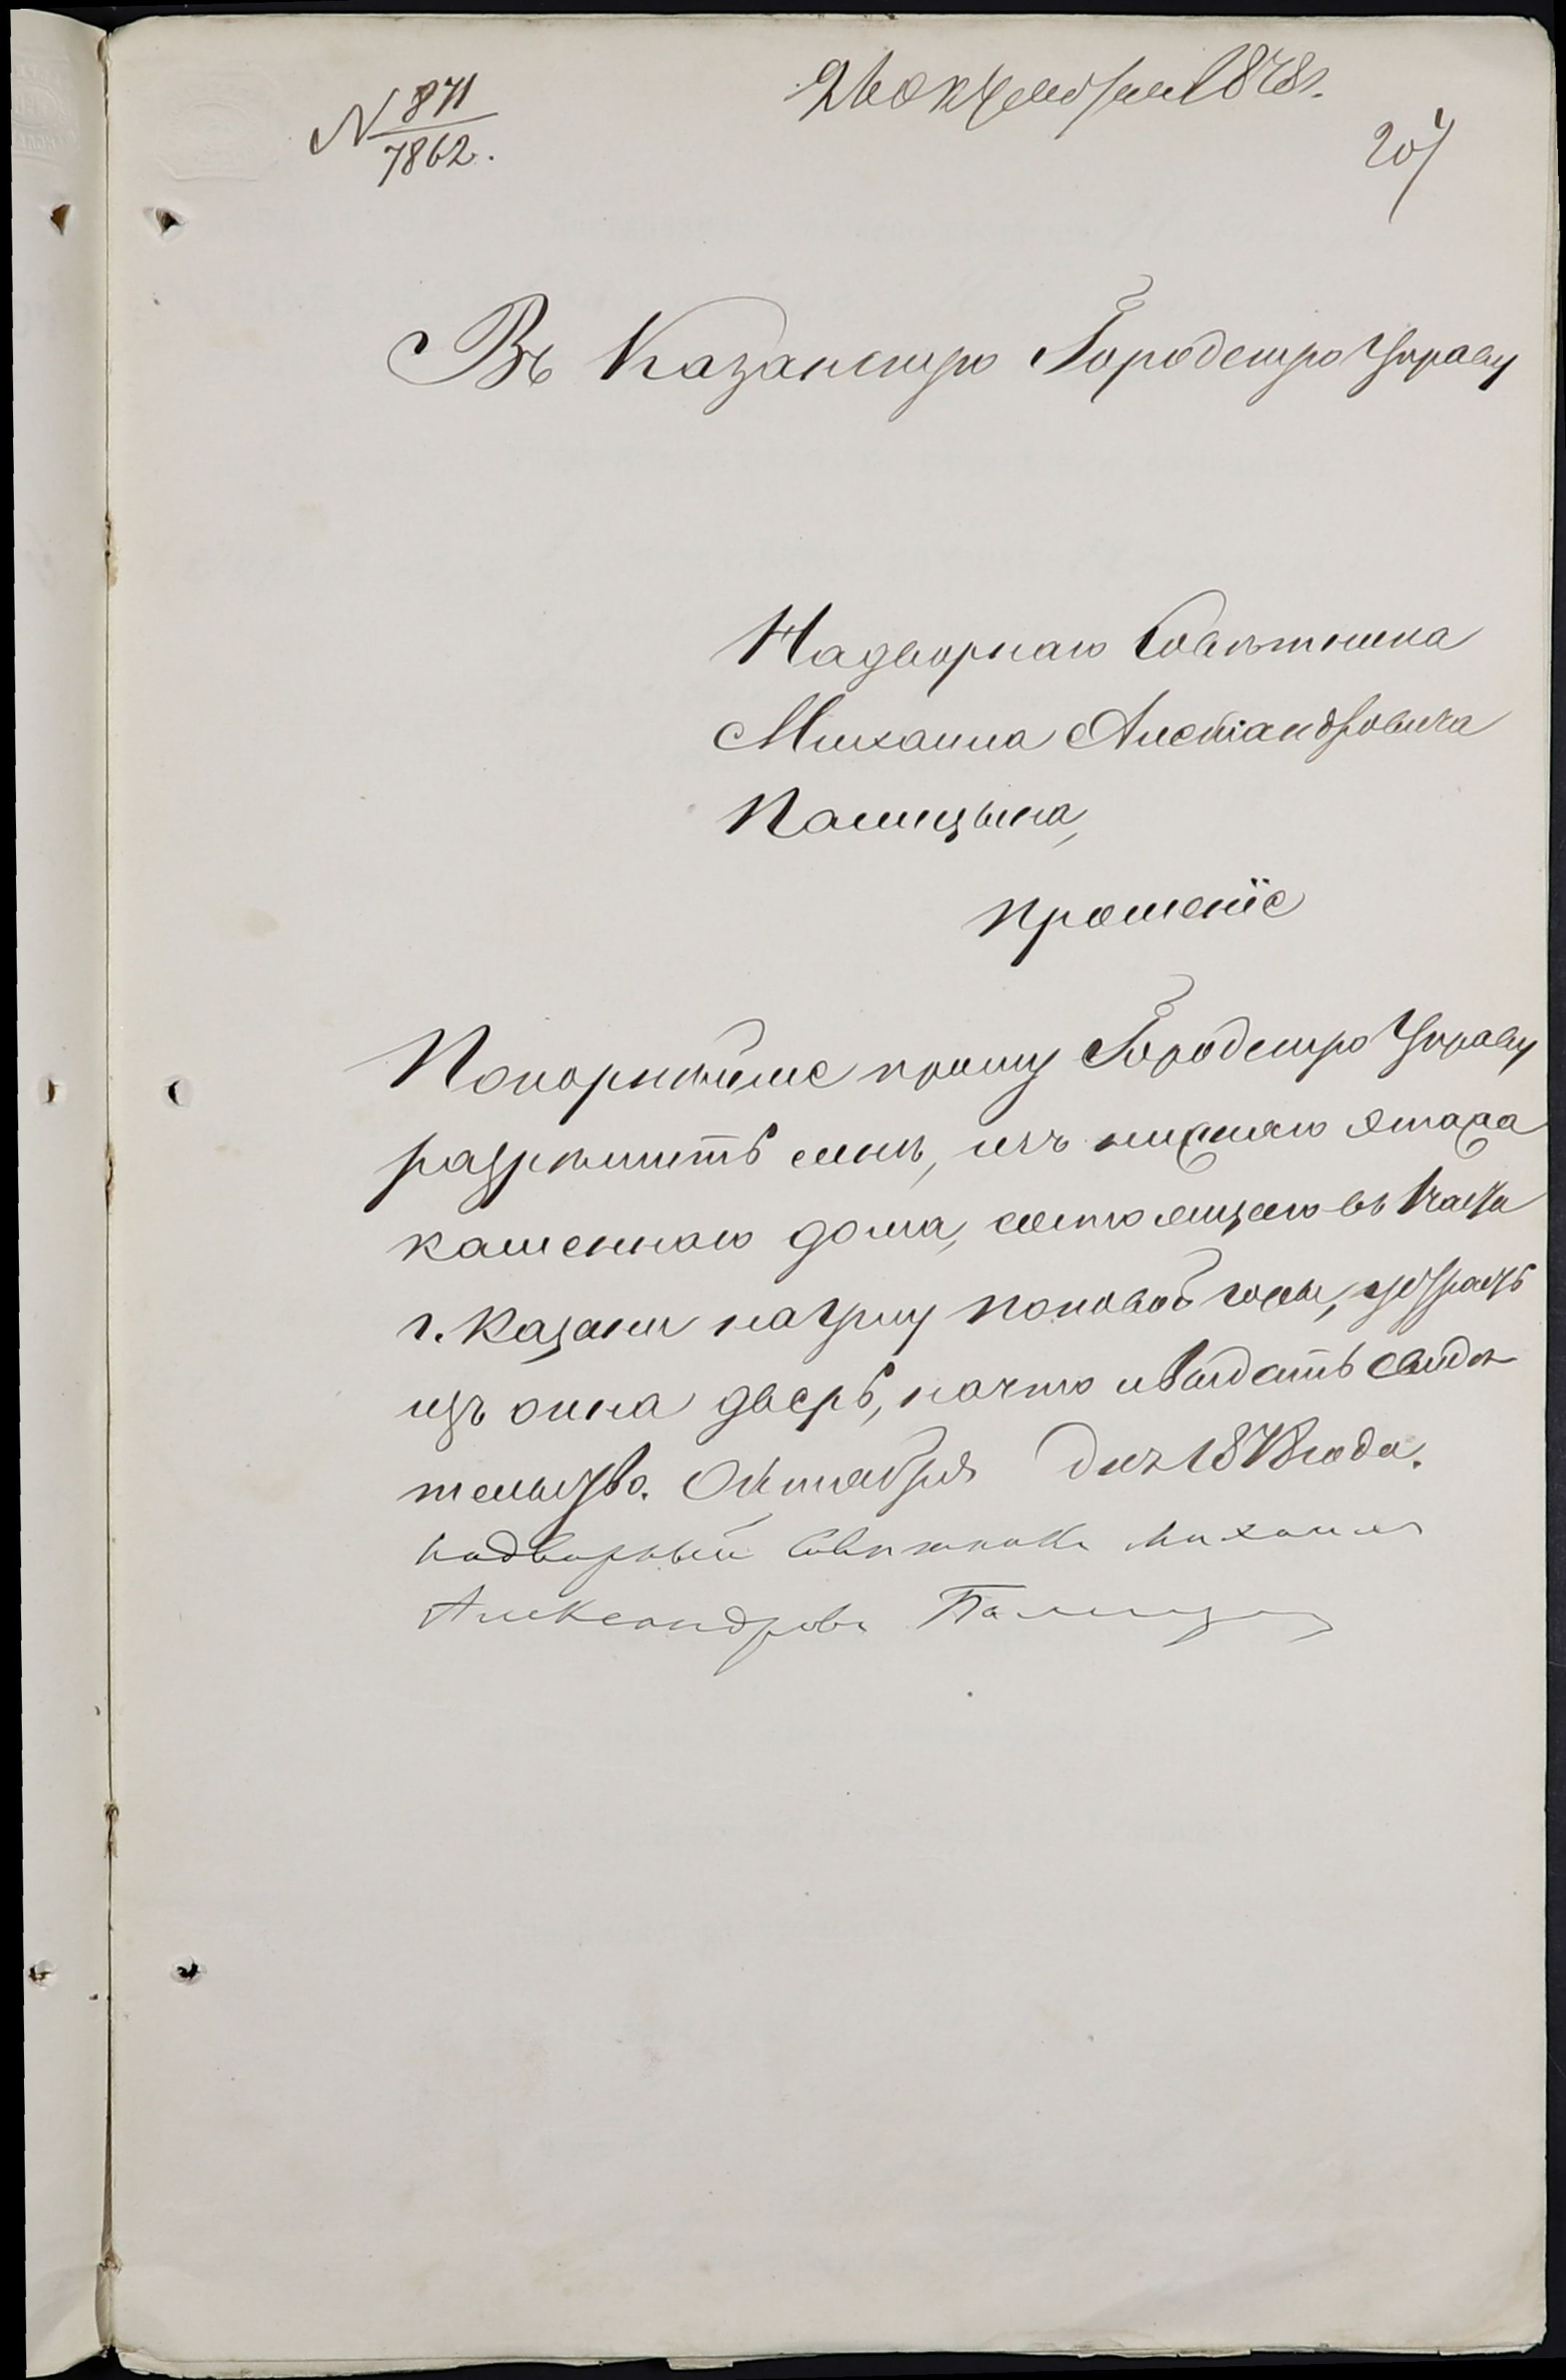 26 октября 1878 г.
N 871
7862.
207
Въ Казанскую Городскую Управу
Надворнаго Советника
Михаила Александровича
Палицына,
прошеніе
Покорнѣйше прошу Городскую Управу
разрѣшить мнѣ, изъ нижняго этажа
каменнаго дома, состоящаго въ 1 части
г. Казани на углу Поповой горы, устроить
изъ окна дверь, на что и выдать свидѣ
тельство. Октября дня 1878 года.
Надворный Совѣтникъ Михаилъ
Александровъ Палицынъ